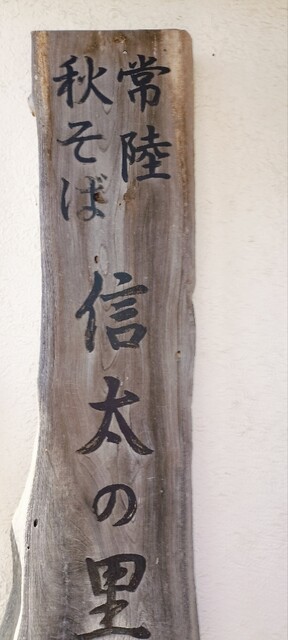 常陸
秋そば
信太の里